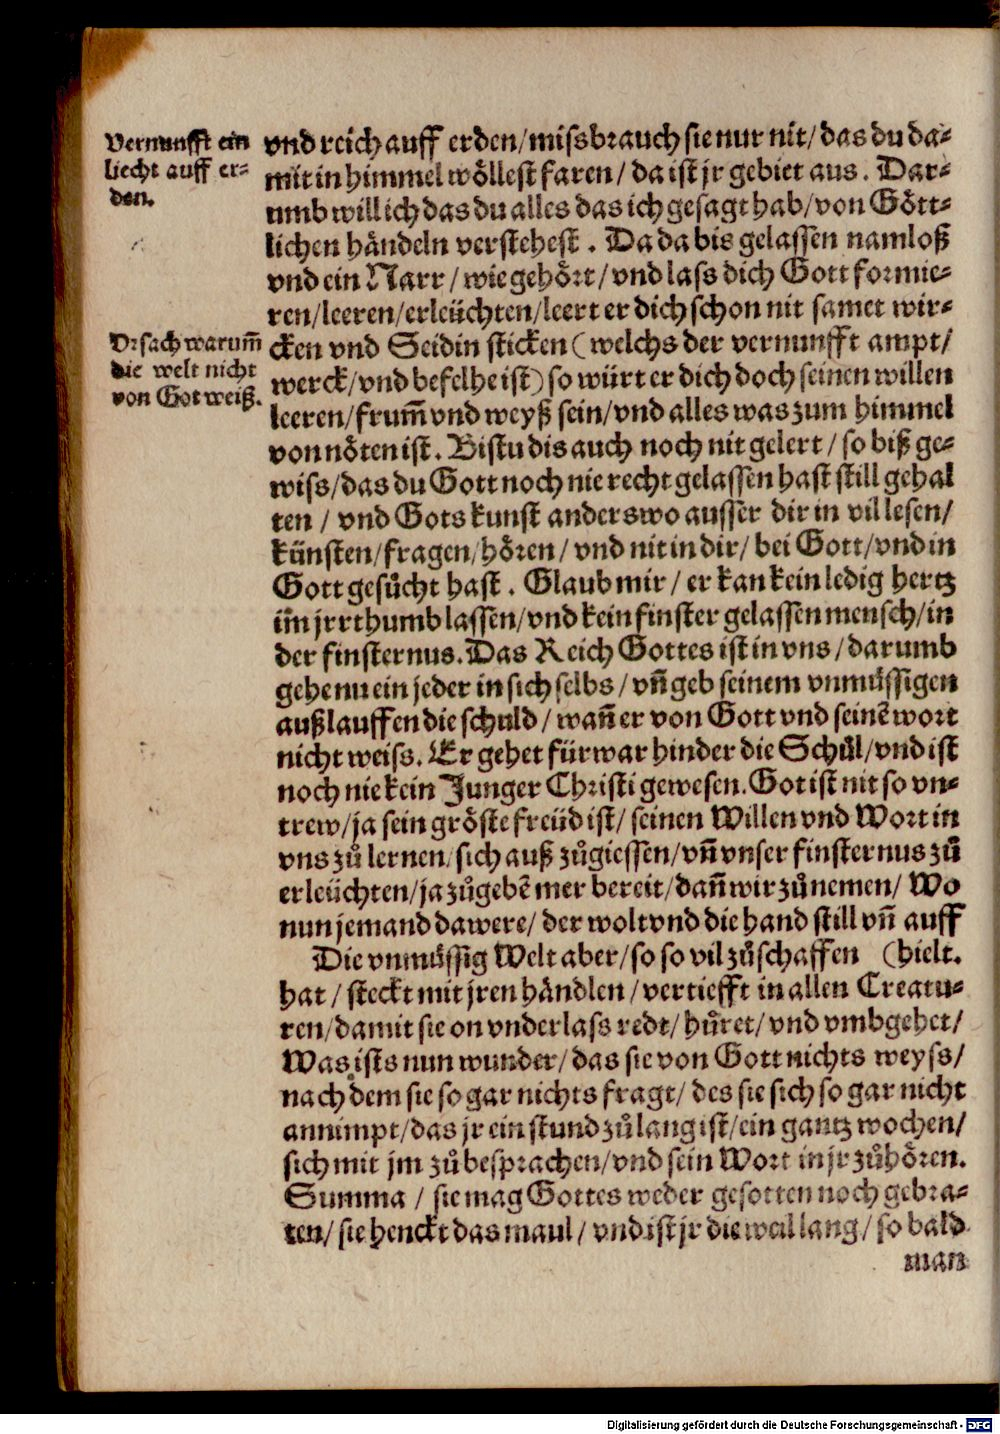 Vernunfft ein
liecht auff er-
den.
vnd reich auff erden/missbrauch sie nur nit/das du da-
mit in himmel wöllest faren/da ist jr gebiet aus. Dar-
umb will ich das du alles das ich gesagt hab/von Gött-
lichen händeln verstehest. Da da bis gelassen namloß
vnd ein Narr/wie gehört/vnd lass dich Gott formie-
ren/leeren/erleüchten/leert er dich schon nit samet wir-
Vrsach warum̃
die welt nicht
von Got weiß.
cken vnd Seidin sticken (welchs der vernunfft ampt/
werck/vnd befelhe ist) so würt er dich doch seinen willen
leeren/frum̃ vnd weyß sein/vnd alles was zum himmel
von nöten ist. Bistu dis auch noch nit gelert/so biß ge-
wiss/das du Gott noch nie recht gelassen hast still gehal
ten/vnd Gots kunst anderswo ausser dir in vil lesen/
künsten/fragen/hören/vnd nit in dir/bei Gott/vnd in
Gott gesůcht hast. Glaub mir/er kan kein ledig hertz
im̃ jrrthumb lassen/vnd kein finster gelassen mensch/in
der finsternus. Das Reich Gottes ist in vns/darumb
gehe nu ein jeder in sich selbs/vñ geb seinem vnmůssigen
außlauffen die schuld/wañ er von Gott vnd seinẽ wort
nicht weiss. Er gehet fürwar hinder die Schůl/vnd ist
noch nie kein Junger Christi gewesen. Got ist nit so vn-
trew/ja sein gröste freüd ist/seinen Willen vnd Wort in
vns zů lernen/sich auß zůgiessen/vñ vnser finsternus zů
erleüchten/ja zůgebẽ mer bereit/dañ wir zůnemen/Wo
nun jemand da were/der wolt vnd die hand still vñ auff
Die vnmüssig Welt aber/so so vil zůschaffen (hielt.
hat/steckt mit jren händlen/vertiefft in allen Creatu-
ren/damit sie on vnderlass redt/hůret/vnd vmbgehet/
Was ists nun wunder/das sie von Gott nichts weyss/
nach dem sie so gar nichts fragt/des sie sich so gar nicht
annimpt/das jr ein stund zů lang ist/ein gantz wochen/
sich mit jm zů besprachen/vnd sein Wort in jr zůhören.
Summa/sie mag Gottes weder gesotten noch gebra-
ten/sie henckt das maul/vnd ist jr die weil lang/so bald
man
Digitalisierung gefördert durch die Deutsche Forschungsgemeinschaft - DFG